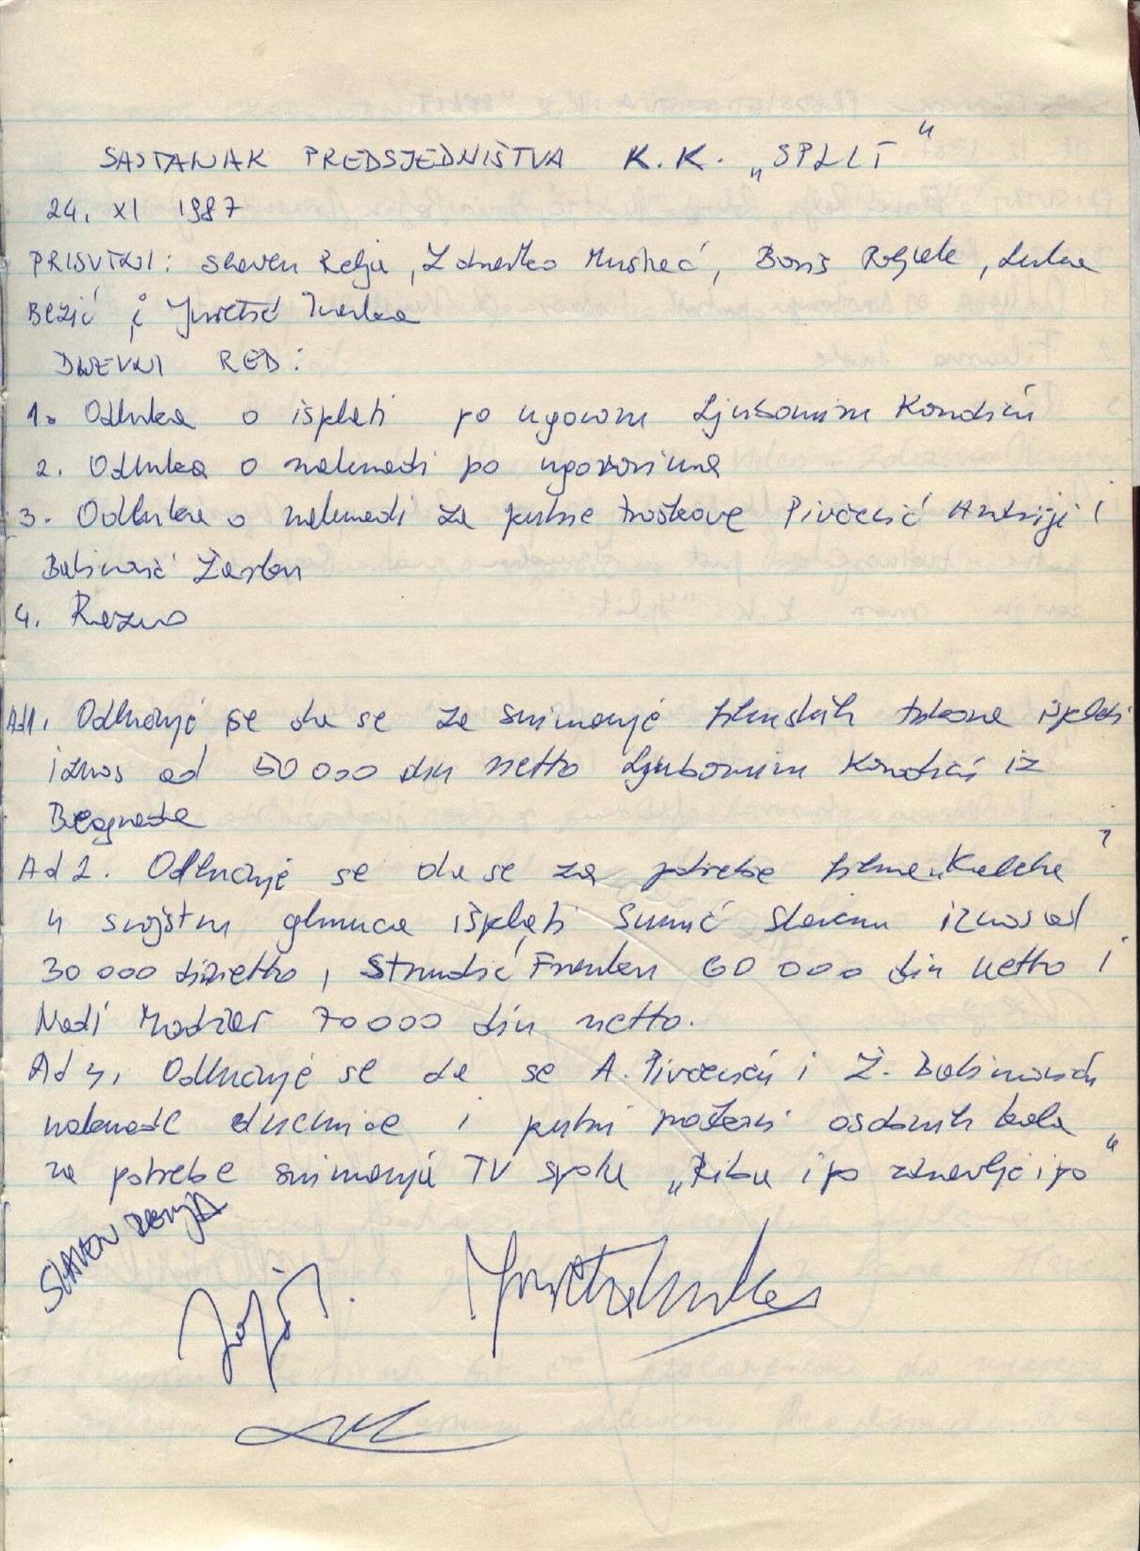 SASTANAK PREDSJEDNIŠTVA K.K. „SPLIT“
24. XI 1987
PRISUTNI: Slaven Relja, Zdravko Mustać, Boris Poljak, Lukra
Bezić i Juretić Ivanka
DNEVNI RED:
1. Odluka o isplati po ugovoru Ljubomiru Kondiću
2. Odluka o naknadi po ugovorima
3. Odluka o naknadi za putne troškove Pivčević Andriji i
Batinović Žarku
4. Razno
Ad1. Odlučuje se da se za snimanje filmskih tonova isplati
iznos od 50 000 din netto Ljubomiru Kondiću iz
Beograda
Ad 2. Odlučuje se da se za potrebe filma „Kaleta“
u svojstvu glumca isplati Sumić Slavenu iznos od
30 000 din netto, Strmotić Franku 60 000 din netto i
Nadi 70 000 din netto.
Ad 4. Odlučuje se da se A. Pivčeviću i Ž. Batinoviću
naknade dnevnice i putni troškovi osobnih kola
za potrebe snimanja TV spota „Riba i po zdravlje i po“
SLAVEN RELJA